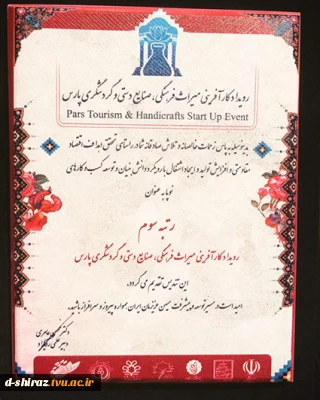 رویداد کارآفرینی میراث فرهنگی، صنایع دستی و گردشگری پارس
Pars Tourism & Handicrafts Start Up Event
بدینوسیله به پاس زحمات خالصانه و تلاش صادقانه شما در راستای تحقق اهداف اقتصاد
مقاومتی و افزایش تولید و ایجاد اشتغال با رویکرد دانش بنیان و توسعه کسب و کارهای
نوپا به عنوان
رتبه سوم
رویداد کارآفرینی میراث فرهنگی، صنایع دستی و گردشگری پارس
این تندیس تقدیم می گردد.
امید است در مسیر توسعه و پیشرفت میهن عزیزمان ایران همواره پیروز و سرافراز باشید.
دکتر
دبیر علمی رویداد
d-shiraz.tvu.ac.ir